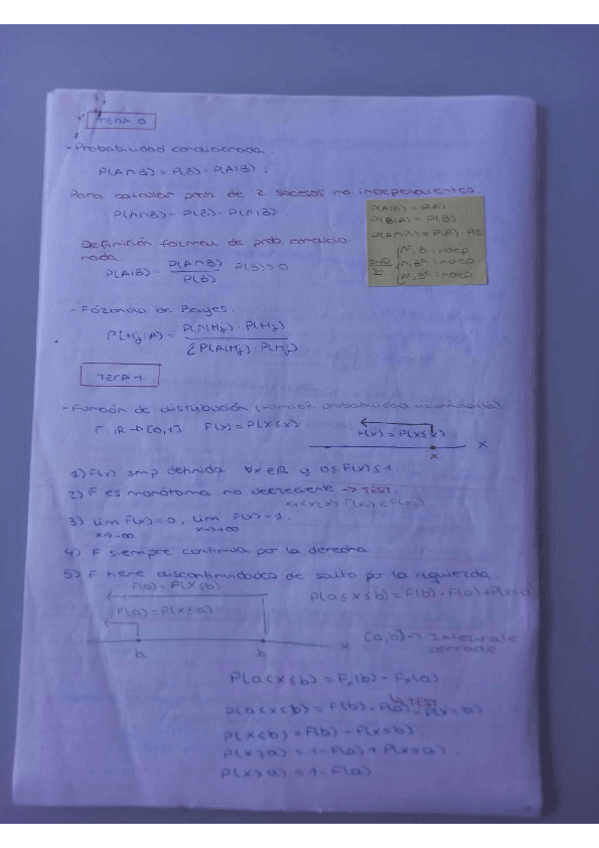 TEMA 0
- Probabilidad condicionada.
P(A∩B) = P(B) · P(A|B).
Para calcular prob de 2 sucesos no independientes.
P(A∩B) = P(B) · P(A|B).
P(A|B) = P(A)
P(B|A) = P(B)
P(A∩B) = P(A) · P(B
Aᶜ, B indep
A, Bᶜ indep
Aᶜ, Bᶜ indep
Definición formal de prob condicio
nada.
P(A|B) = P(A∩B) / P(B) P(B) > 0
- Fórmula de Bayes.
P(Hj|A) = P(A|Hj) · P(Hj) / Σ P(A|Hj) · P(Hj)
TEMA 1.
- Función de distribución (función probabilidad acumulada)
F: ℝ → [0,1] F(x) = P(X ≤ x)
F(x) = P(X ≤ x)
x
x
1) F(x) smp definida ∀x ∈ ℝ y 0 ≤ F(x) ≤ 1.
2) F es monótona no decreciente → TEST.
3) lim F(x) = 0, lim F(x) = 1.
x→-∞ x→+∞
4) F siempre continua por la derecha
5) F tiene discontinuidades de salto por la izquierda
F(a) = P(X ≤ b)
P(a ≤ X ≤ b) = F(b) - F(a) + P(X = a)
F(a) = P(X ≤ a)
a b x
[a,b] → Intervalo
cerrado
P(a < X ≤ b) = Fx(b) - Fx(a)
TEST
P(a < X < b) = F(b) - F(a) - P(X = b)
P(X < b) = F(b) - P(X = b)
P(X ≥ a) = 1 - F(a) + P(X = a)
P(X > a) = 1 - F(a)